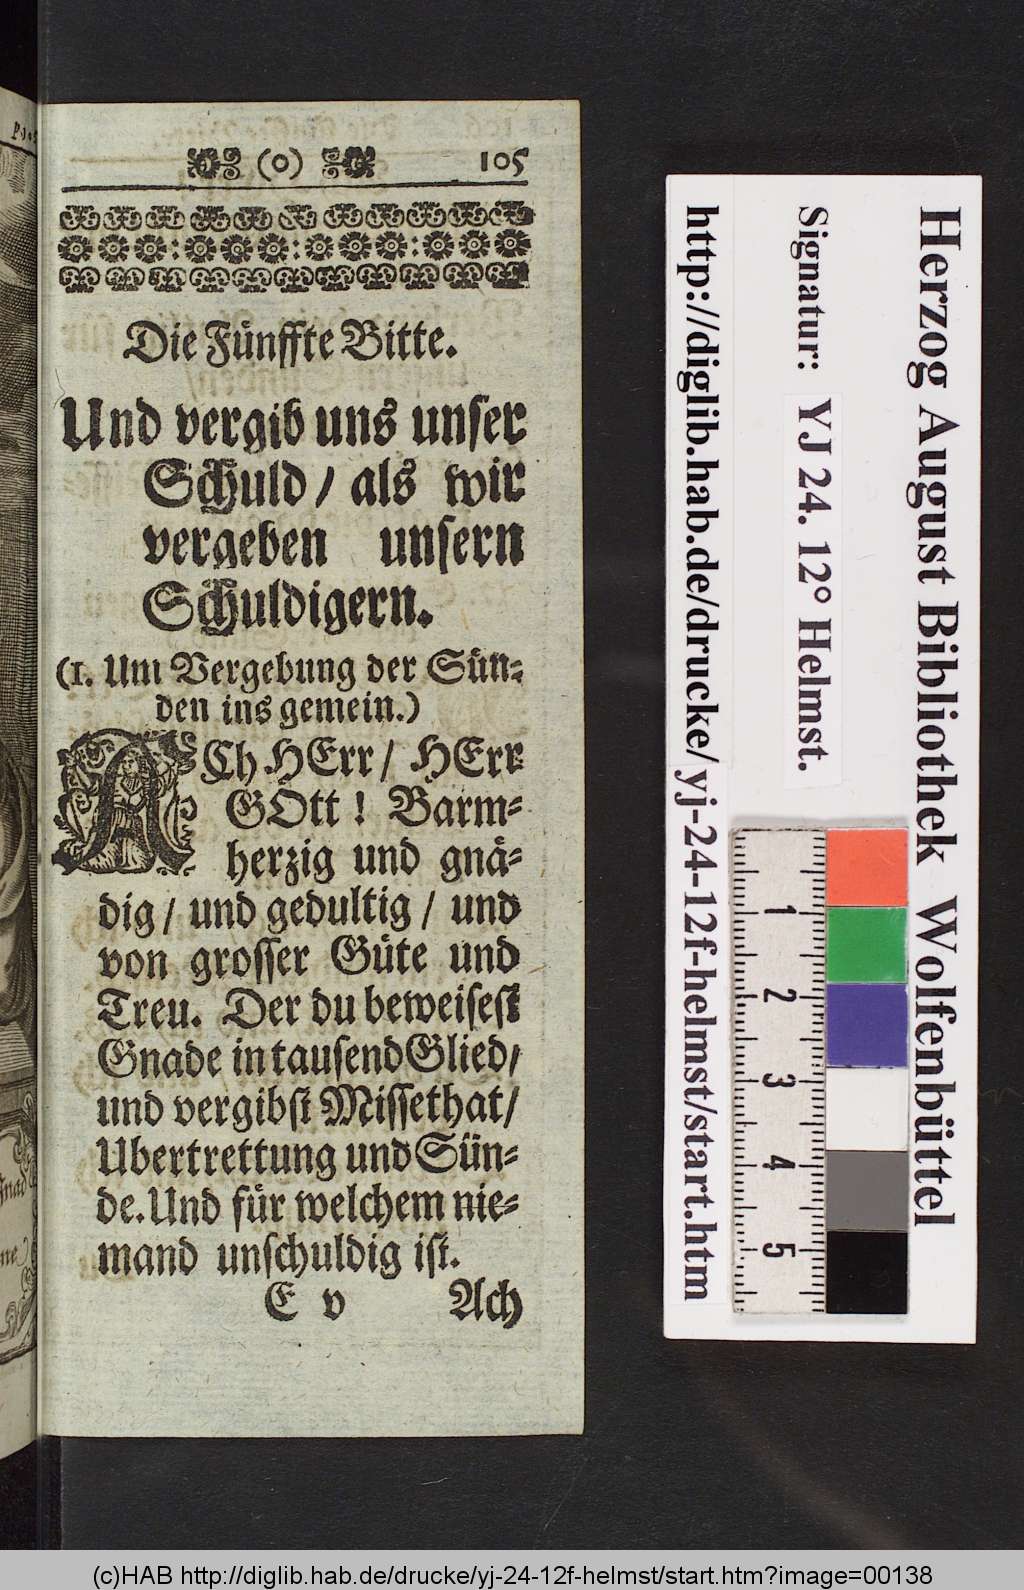 (o) 105
Die Fünffte Bitte.
Und vergib uns unser
Schuld / als wir
vergeben unsern
Schuldigern.
(1. Um Vergebung der Sün-
den ins gemein.)
ACh HErr / HErr
GOtt ! Barm-
herzig und gnä-
dig / und gedultig / und
von grosser Güte und
Treu. Der du beweisest
Gnade in tausend Glied/
und vergibst Missethat/
Ubertrettung und Sün-
de. Und für welchem nie-
mand unschuldig ist.
E v Ach
Herzog August Bibliothek Wolfenbüttel
Signatur: YJ 24. 12° Helmst.
http://diglib.hab.de/drucke/yj-24-12f-helmst/start.htm
1
2
3
4
5
(c)HAB http://diglib.hab.de/drucke/yj-24-12f-helmst/start.htm?image=00138